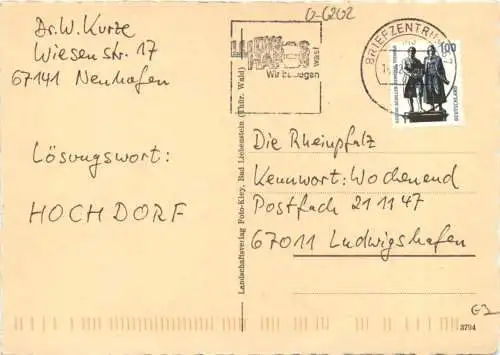 G-6202
Dr. W. Kurze
Wiesenstr. 17
67141 Neuhofen
Lösungswort:
HOCHDORF
Landschaftsverlag Foto-Kley, Bad Liebenstein (Thür. Wald)
Wir bewegen was!
BRIEFZENTRUM
100
DEUTSCHLAND
Die Rheinpfalz
Kennwort: Wochenend
Postfach 21 11 47
67011 Ludwigshafen
3794